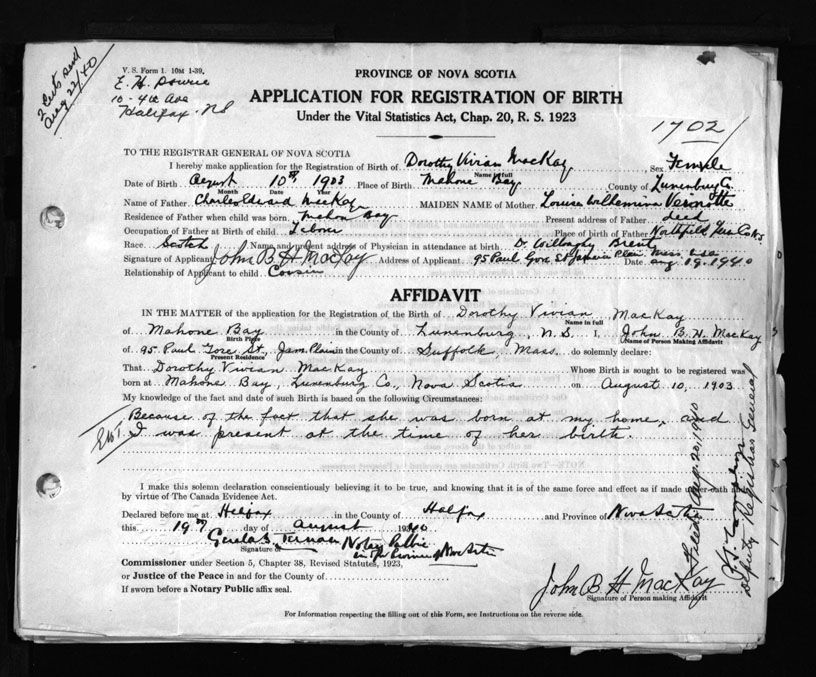 V. S. Form 1. 10M 1-39.
2 Certs send
Aug 22/40
E. H. Dowrie
10 - 4th Ave
Halifax NS
PROVINCE OF NOVA SCOTIA
APPLICATION FOR REGISTRATION OF BIRTH
Under the Vital Statistics Act, Chap. 20, R. S. 1923
1702
TO THE REGISTRAR GENERAL OF NOVA SCOTIA
I hereby make application for the Registration of Birth of Dorothy Vivian MacKay, Sex Female
Name in full
Date of Birth August 10th 1903 Place of Birth Mahone Bay County of Lunenburg Co.
Month Date Year
Name of Father Charles MacKay MAIDEN NAME of Mother Louisa Wilhemina Vernotte
Residence of Father when child was born Mahon Bay Present address of Father dead
Occupation of Father at Birth of child Labour Place of birth of Father Northfield
Race Scotch Name and present address of Physician in attendance at birth Dr.
Signature of Applicant John B H MacKay Address of Applicant 95 Paul Gore St Jamaica Plain Mass. USA Date Aug 19. 1940
Relationship of Applicant to child Cousin
AFFIDAVIT
IN THE MATTER of the application for the Registration of the Birth of Dorothy Vivian MacKay
Name in full
of Mahone Bay in the County of Lunenburg, N.S. I, John B. H. MacKay
Birth Place
(Name of Person Making Affidavit
of 95 Paul Gore St., Jam. Plain in the County of Suffolk, Mass. do solemnly declare:
Present Residence
That Dorothy Vivian MacKay Whose Birth is sought to be registered was
born at Mahone Bay, Lunenburg Co., Nova Scotia on August 10, 1903.
My knowledge of the fact and date of such Birth is based on the following Circumstances:
Because of the fact that she was born at my home, and
I was present at the time of her birth.
I make this solemn declaration conscientiously believing it to be true, and knowing that it is of the same force and effect as if made under oath and
by virtue of The Canada Evidence Act.
Declared before me at Halifax in the County of Halfax and Province of Nova Scotia
this 19th day of August 1940.
Notary Public
Signature of
in the Province of Nova Scotia
Commissioner under Section 5, Chapter 38, Revised Statutes, 1923,
or Justice of the Peace in and for the County of
If sworn before a Notary Public affix seal.
John B H MacKay
Signature of Person making Affidavit
For Information respecting the filling out of this Form, see Instructions on the reverse side.
Filed: Aug. 20, 1940
Deputy Registrar General